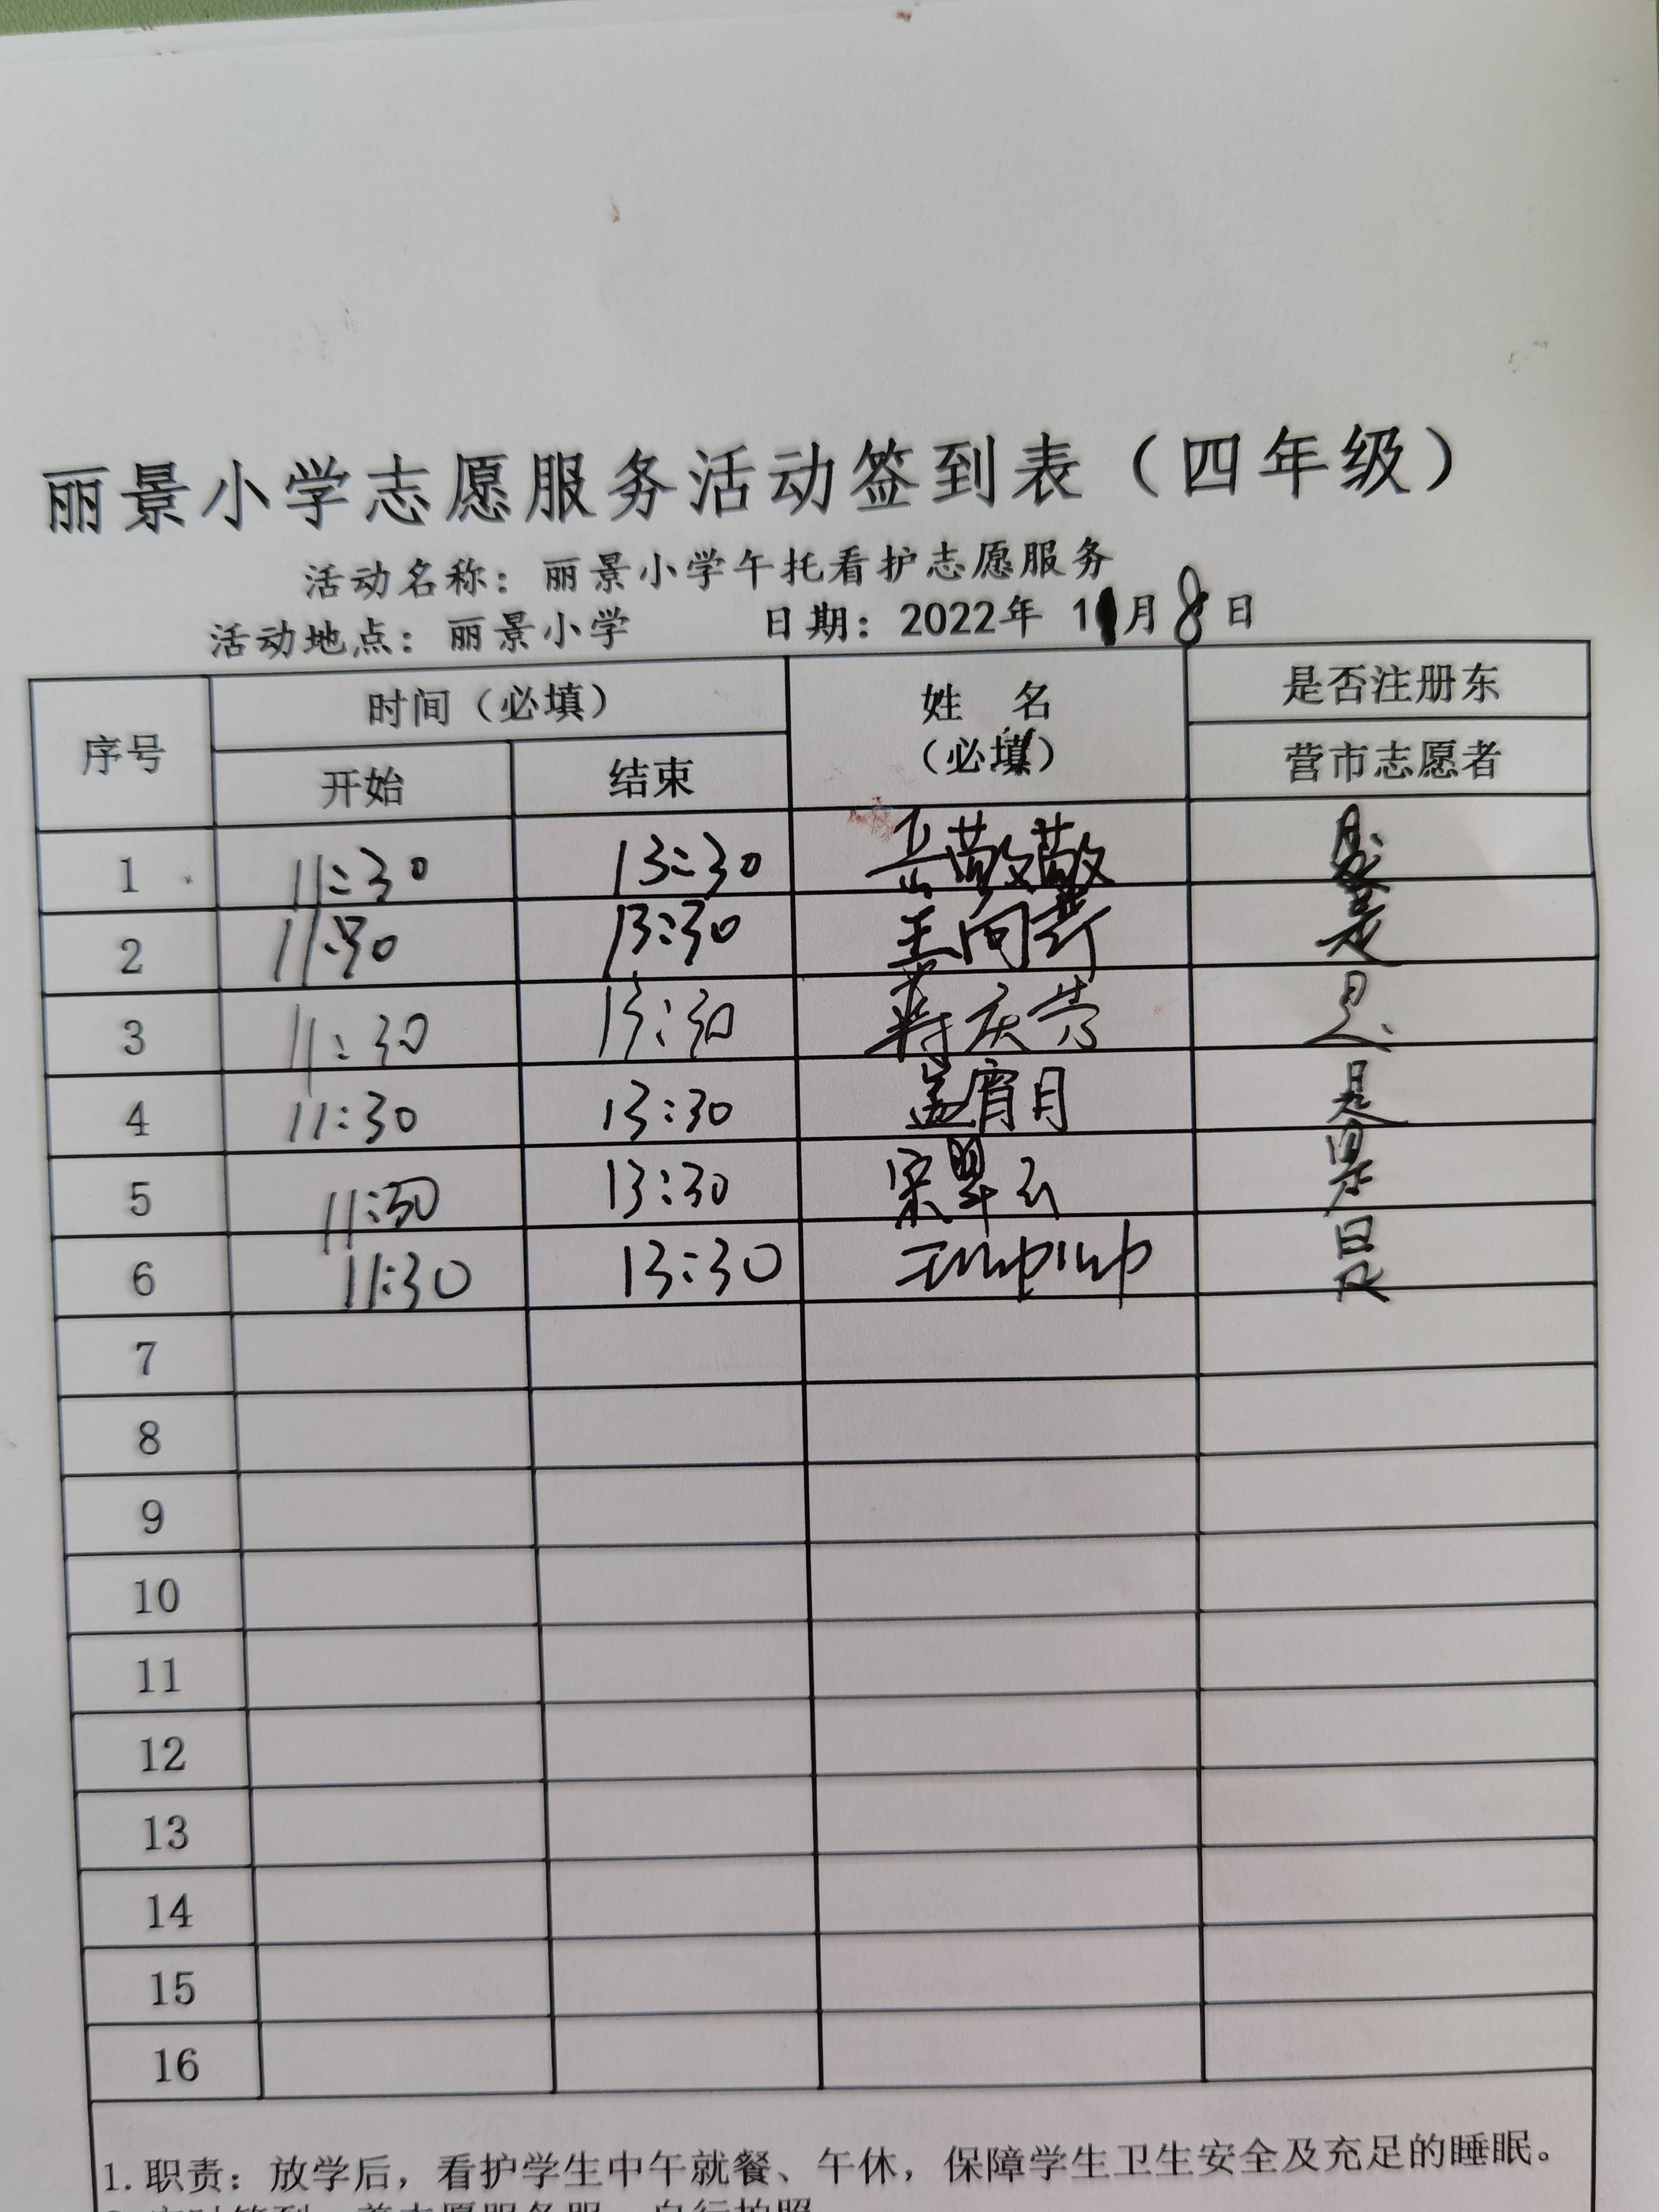 丽景小学志愿服务活动签到表（四年级）
活动名称：丽景小学午托看护志愿服务
活动地点：丽景小学 日期：2022年 11月8日
序号 时间（必填） 姓 名 是否注册东
开始 结束 （必填） 营市志愿者
1 11:30 13:30 岳敬敬 是
2 11:30 13:30 王向 是
3 11:30 13:30 蒋庆芳 是
4 11:30 13:30 孟宵月 是
5 11:30 13:30 宋翠云 是
6 11:30 13:30 王帅帅 是
7
8
9
10
11
12
13
14
15
16
1.职责：放学后，看护学生中午就餐、午休，保障学生卫生安全及充足的睡眠。